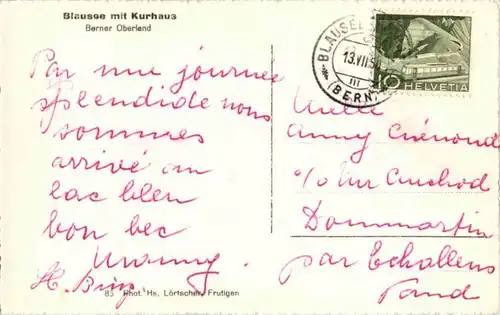 Blausee mit Kurhaus
Berner Oberland
Par une journée
splendide nous
sommes
arrivé au
lac bleu
bon bec
H.
BLAUSEE
13.VII.5
III
(BERN)
10
HELVETIA
Melle
Anny
c/o Mr Cuchod
Dommartin
par Echallens
Vaud
83 Phot. Hs. Lörtscher, Frutigen